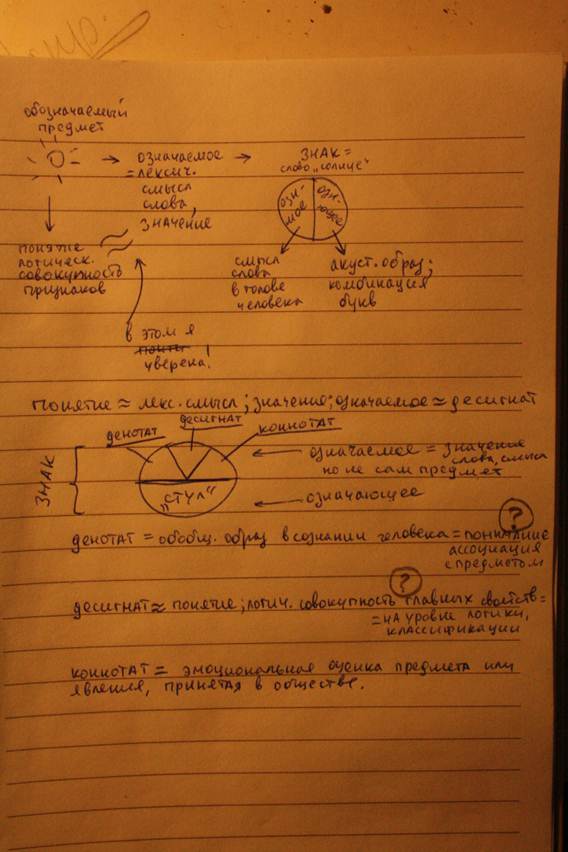 обозначаемый
предмет
означаемое
= лексич.
смысл
слова,
значение
ЗНАК =
слово „солнце“
озн-
мое
озн-
ющее
понятие
логическ.
совокупность
признаков
смысл
слова
в голове
человека
акуст. образ;
комбинация
букв
в этом я
уверена!
понятие ≈ лекс. смысл; значение; означаемое ≈ десигнат
ЗНАК
денотат
десигнат
коннотат
„стул“
означаемое = значение
слова, смысл
но не сам предмет
означающее
?
денотат = обобщ. образ в сознании человека = понимание
ассоциация
с предметом
?
десигнат ≈ понятие; логич. совокупность главных свойств =
= на уровне логики,
классификации
коннотат = эмоциональная оценка предмета или
явления, принятая в обществе.